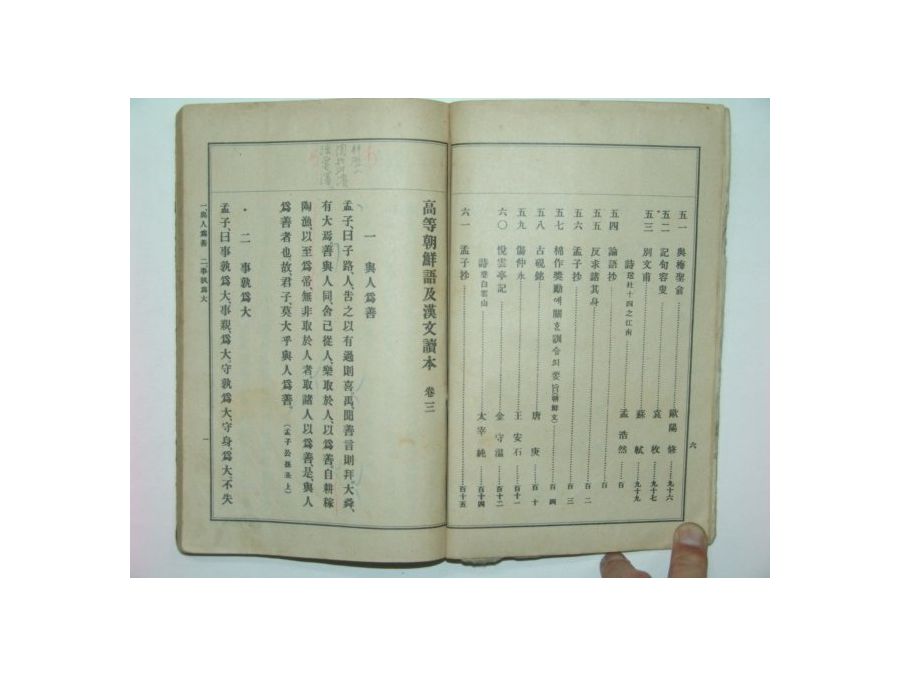 五一 與梅聖兪 歐陽修 九十六
五二 記句容叟 袁枚 九十七
五三 別文甫 蘇軾 九十九
詩 送杜十四之江南 孟浩然 百
五四 論語抄 百
五五 反求諸其身 百二
五六 孟子抄 百三
五七 棉作奬勵에關한訓令의要旨(朝鮮文) 百四
五八 古硯銘 唐庚 百十
五九 傷仲永 王安石 百十一
六〇 悅雲亭記 金守溫 百十二
詩 登白雲山 太宰純 百十四
六一 孟子抄 百十五
六
高等朝鮮語及漢文讀本 卷三
一 與人爲善
孟子、曰子路、人、告之以有過則喜、禹、聞善言則拜、大舜、
有大焉、善與人同、舍己從人、樂取於人、以爲善、自耕稼
陶漁、以至爲帝、無非取於人者、取諸人以爲善、是、與人
爲善者也、故、君子、莫大乎與人爲善。(孟子公孫丑上)
二 事孰爲大
孟子、曰事孰爲大、事親、爲大、守孰爲大、守身、爲大、不失
一、與人爲善 二、事孰爲大
一